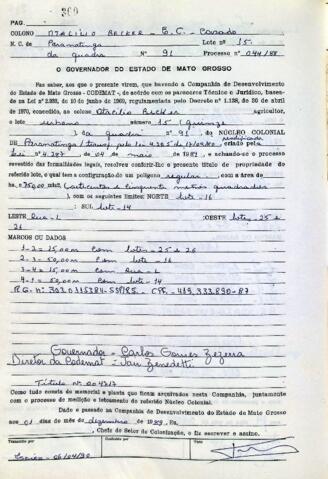 PAG. 360
COLONO Otacilio Becker - E.C. Casado
N. C. de Paranatinga Lote nº 15
da quadra Nº 91 Processo nº 044/88
O GOVERNADOR DO ESTADO DE MATO GROSSO
Faz saber, aos que o presente virem, que havendo a Companhia de Desenvolvimento
do Estado de Mato Grosso - CODEMAT -, de acôrdo com os pareceres Técnico e Jurídico, basea-
na Lei nº 2.355, de 10 de junho de 1969, regulamentada pelo Decreto nº 1.138, de 30 de abril
de 1970, concedido, ao colono Otacilio Becker agricultor,
o lote urbano número 15 (Quinze
) da quadra nº 91, do NÚCLEO COLONIAL
de Paranatinga pela lei criado pela
Lei nº 04 de maio de 1987, e achando-se o processo
revestido das formalidades legais, resolveu conferir-lhe o presente título de propriedade do
referido lote, o qual tem a configuração de um polígono regular com a área de
hs 750,00 (setecentos e cinquenta metros quadrados
), com os seguintes limites: NORTE lote-16
: SUL lote-14
LESTE Rua-L :OESTE lotes-25 e
26
MARCOS OU DADOS
1-2=15,00m com lotes-25 e 26
2-3=50,00m com lote-16
3-4=15,00m com Rua-L
4-1=50,00m com lote-14
R.G. nº 3030115384-SSP/RS. - CPF. - 419.333.890-87
Governador - Carlos Gomes Bezerra
Diretor da Codemat -
Título nº
Como tudo consta do memorial e planta que ficam arquivados nesta Companhia, juntamente
com o processo de medição e loteamento do referido Núcleo Colonial.
Dado e passado na Companhia de Desenvolvimento do Estado de Mato Grosso
aos 01 dias do mês de dezembro de 1989. Eu,
, Chefe do Setor de Colonização, o fiz escrever e assino.
Transcrito por Conferido por Visto
06/04/90